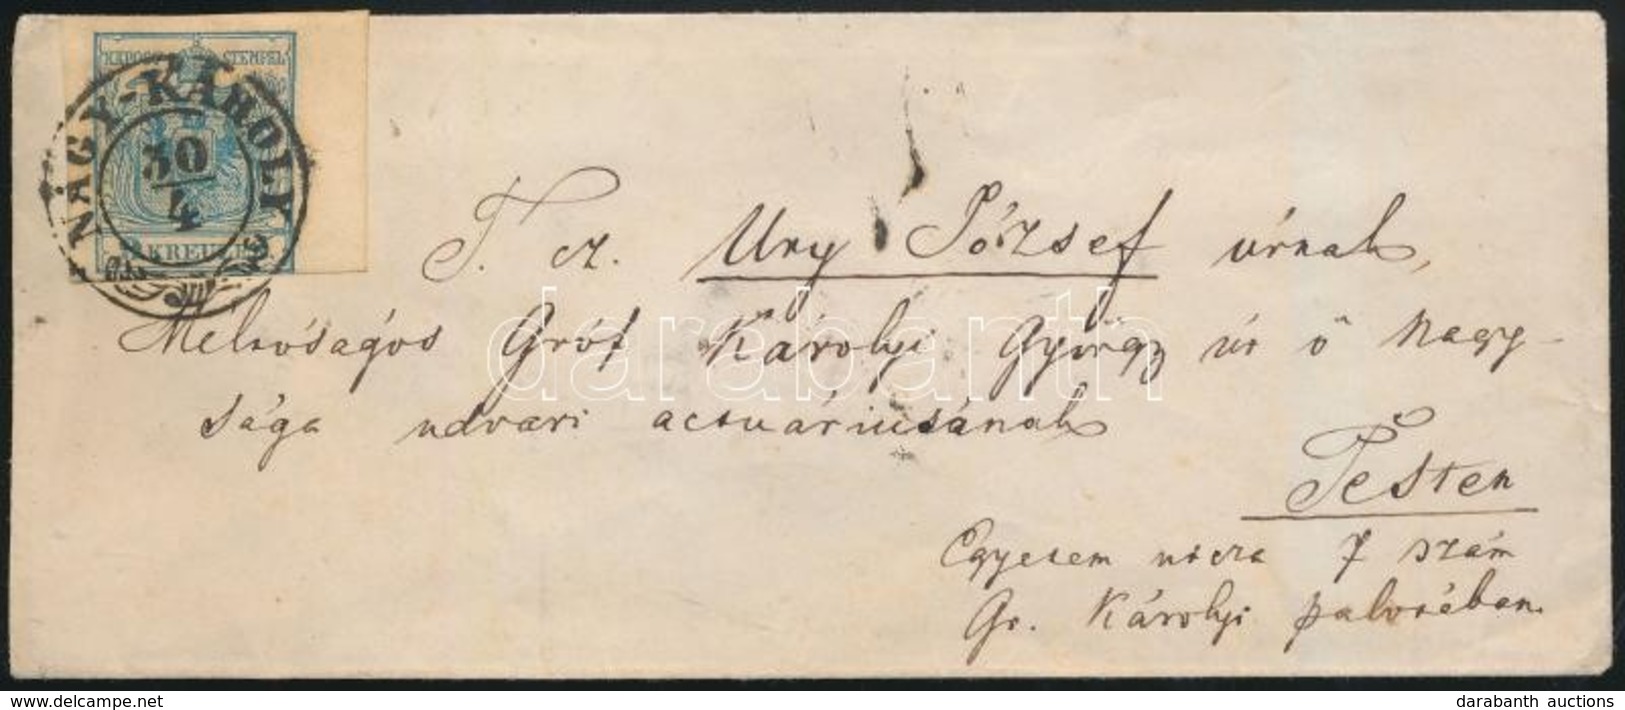 KK POST STEMPEL
NAGY-KÁROLY
30
4
9 KREUZER
T. cz. Ury József úrnak,
Méltóságos Gróf Károlyi György úr ő Nagy-
sága udvari actuáriusának
Pesten
Egyetem utcza 7 szám
Gr. Károlyi palotában.
darabanth
darabanth auctions